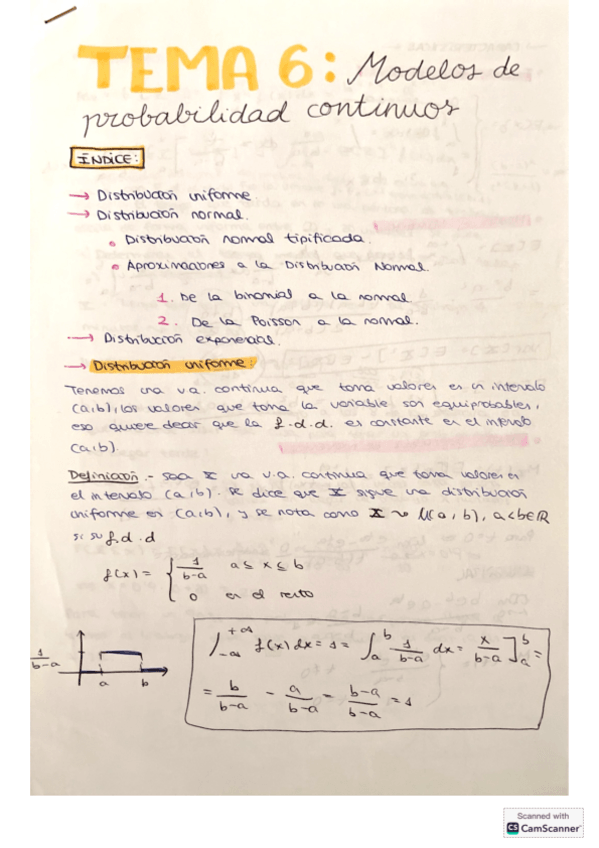 TEMA 6: Modelos de
probabilidad continuos
ÍNDICE:
→ Distribución uniforme
→ Distribución normal.
• Distribución normal tipificada.
• Aproximaciones a la Distribución Normal
1. De la binomial a la normal
2. De la Poisson a la normal.
→ Distribución exponencial.
→ Distribución uniforme:
Tenemos una v.a. continua que toma valores en un intervalo
(a,b), los valores que toma la variable son equiprobables,
eso quiere decir que la f.d.d. es constante en el intervalo
(a,b)
Definición.- sea X una v.a. continua que toma valores en
el intervalo (a,b). Se dice que X sigue una distribución
uniforme en (a,b), y se nota como X ~ U(a,b), a<b∈ℝ
si su f.d.d
f(x) = { 1/(b-a) a ≤ x ≤ b
0 en el resto
∫_{-∞}^{+∞} f(x)dx = 1 = ∫_a^b 1/(b-a) dx = x/(b-a) ]_a^b =
= b/(b-a) - a/(b-a) = (b-a)/(b-a) = 1
1/(b-a)
a b
Scanned with
CS CamScanner